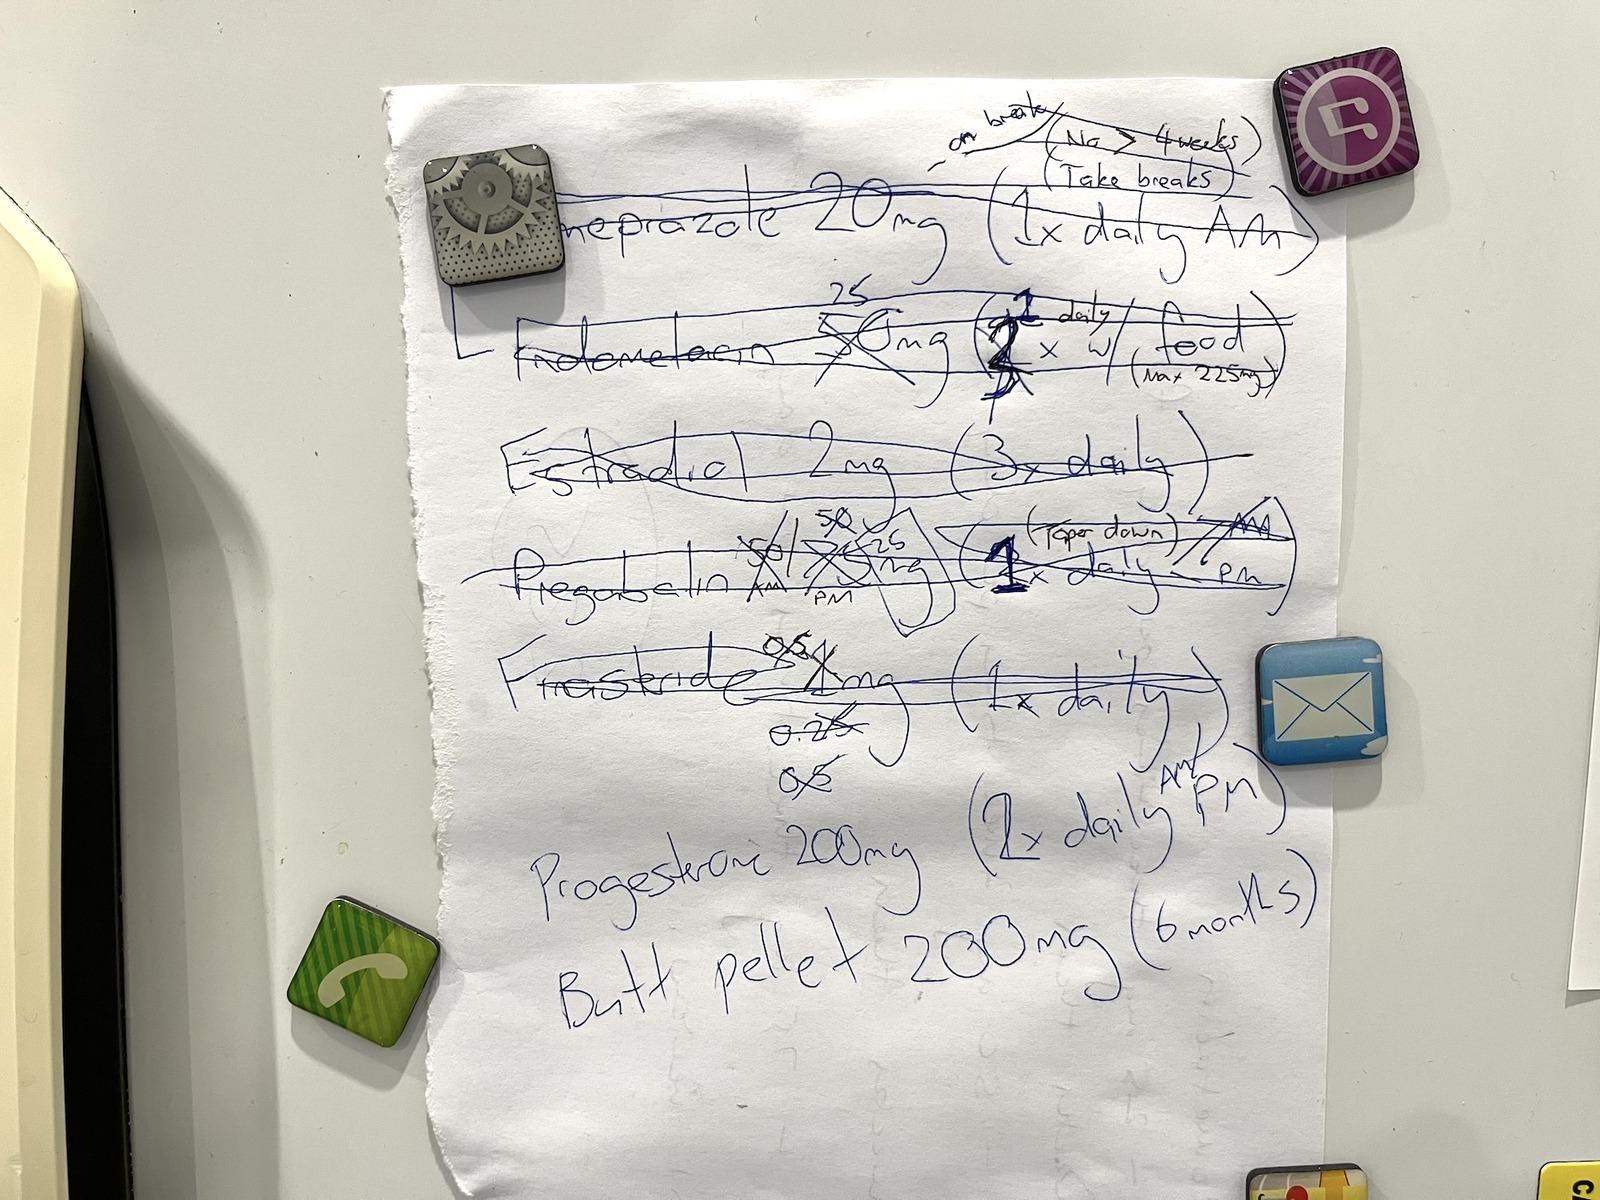 on break
(No > 4 weeks)
(Take breaks)
meprazole 20mg (1x daily AM)
25
Indometacin 50mg (2 1 x daily w/ food)
(Max 225mg)
Estradiol 2mg (3x daily)
50 (Taper down) AM
Pregabalin 50/75 25 mg (1x daily - PM)
AM PM
0.5
Finasteride 1mg (1x daily)
0.25
0.5
AM
Progesterone 200mg (2x daily PM)
Butt pellet 200mg (6 months)